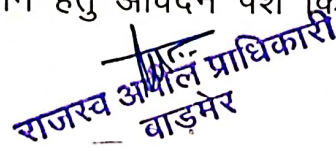 हेतु आवेदन पेश
राजस्व अपील प्राधिकारी
बाड़मेर